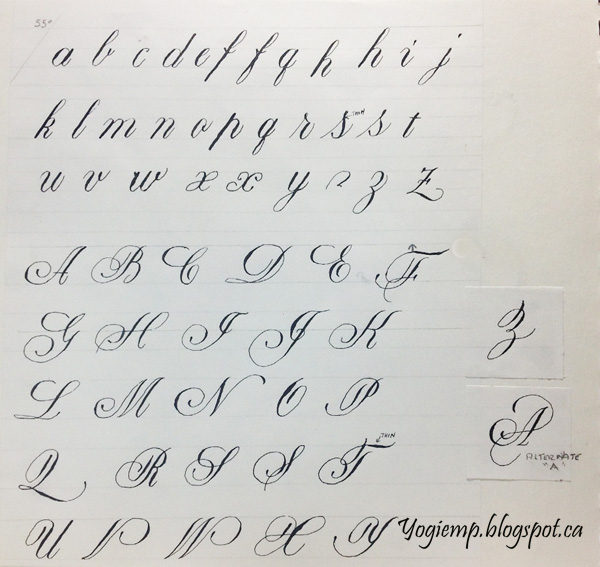 55°
a b c d e f f g h h i j
k l m n o p q r s THIN s t
u v w x x y z z
A B C D E F
G H I J K
Z
L M N O P
A
ALTERNATE
"A"
Q R S S T THIN
U V W X Y
Yogiemp.blogspot.ca